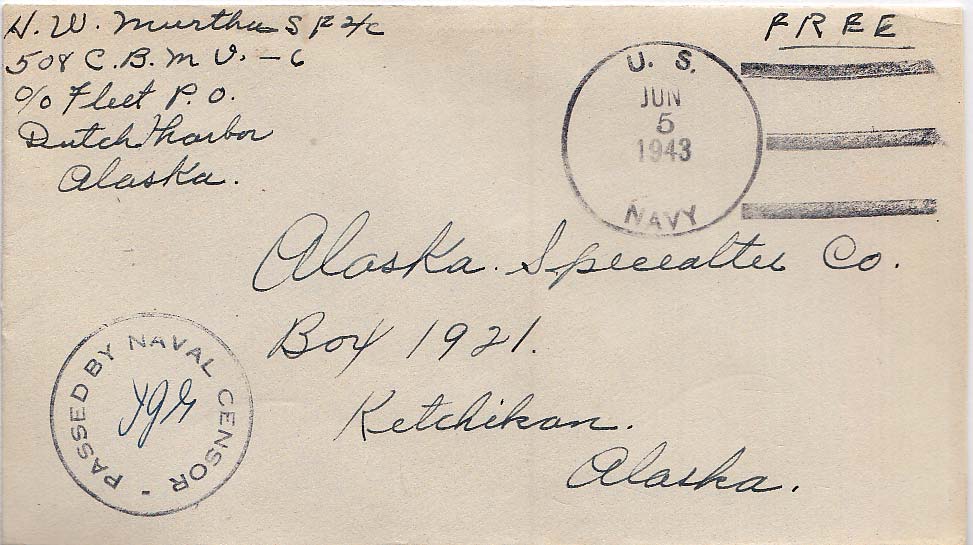 H. W. Murtha S F 2/c
508 C. B. M U. - 6
c/o Fleet P. O.
Dutch Harbor
Alaska.
FREE
U. S.
JUN
5
1943
NAVY
Alaska Specialty Co.
Box 1921.
Ketchikan.
Alaska.
PASSED BY NAVAL CENSOR -